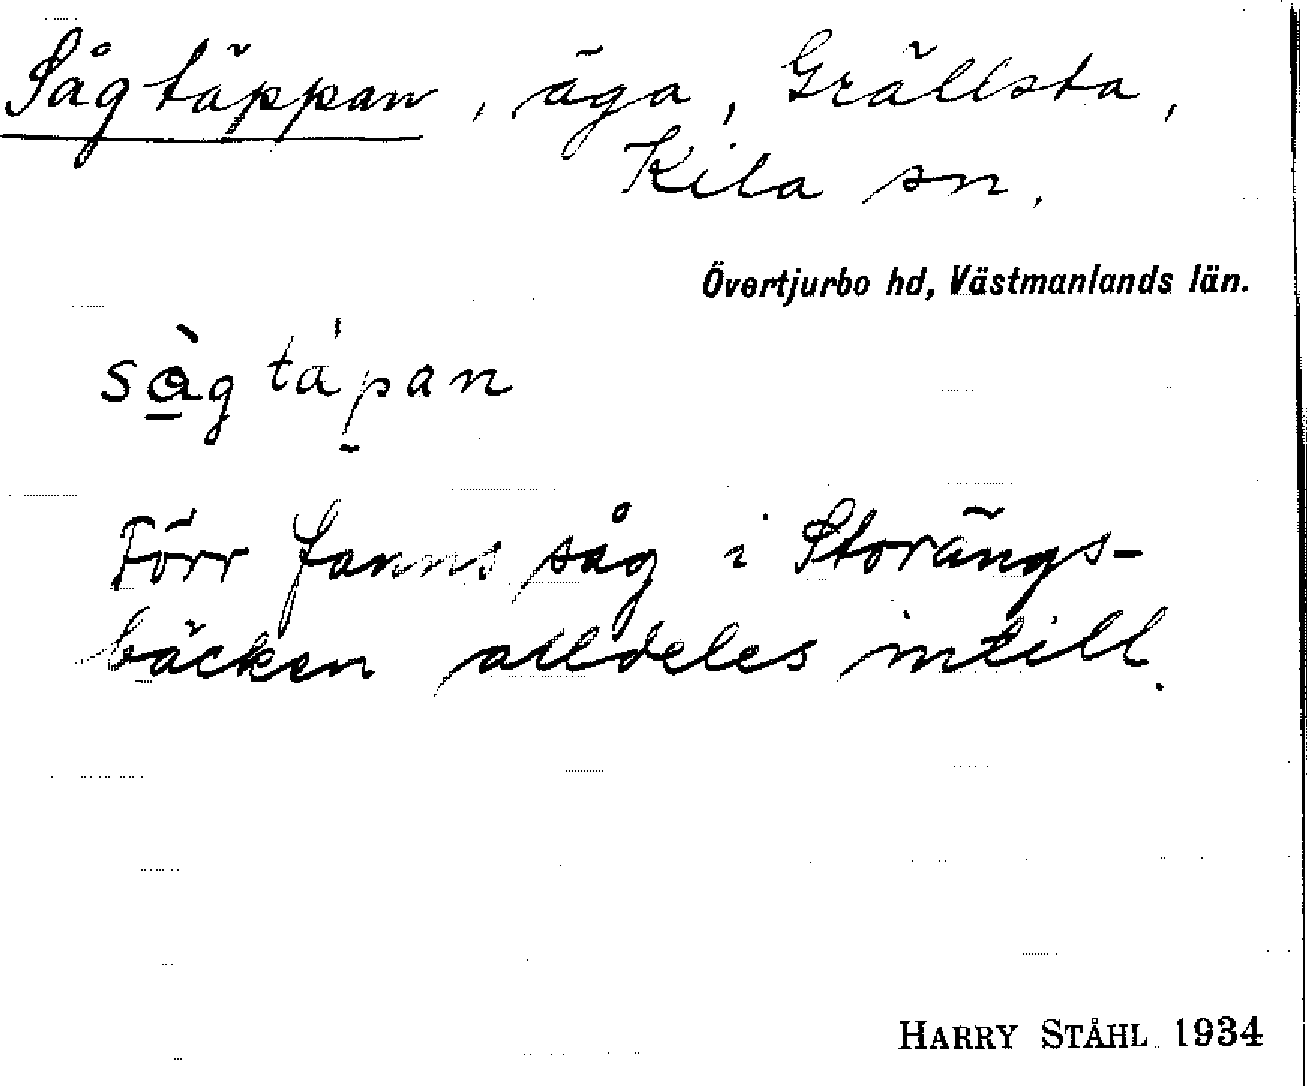 Sågtäppan, äga, Grällsta,
Kila sn.
Övertjurbo hd, Västmanlands län.
sàg tápan
Förr fanns såg i Storängs-
bäcken alldeles intill.
HARRY STÅHL 1934